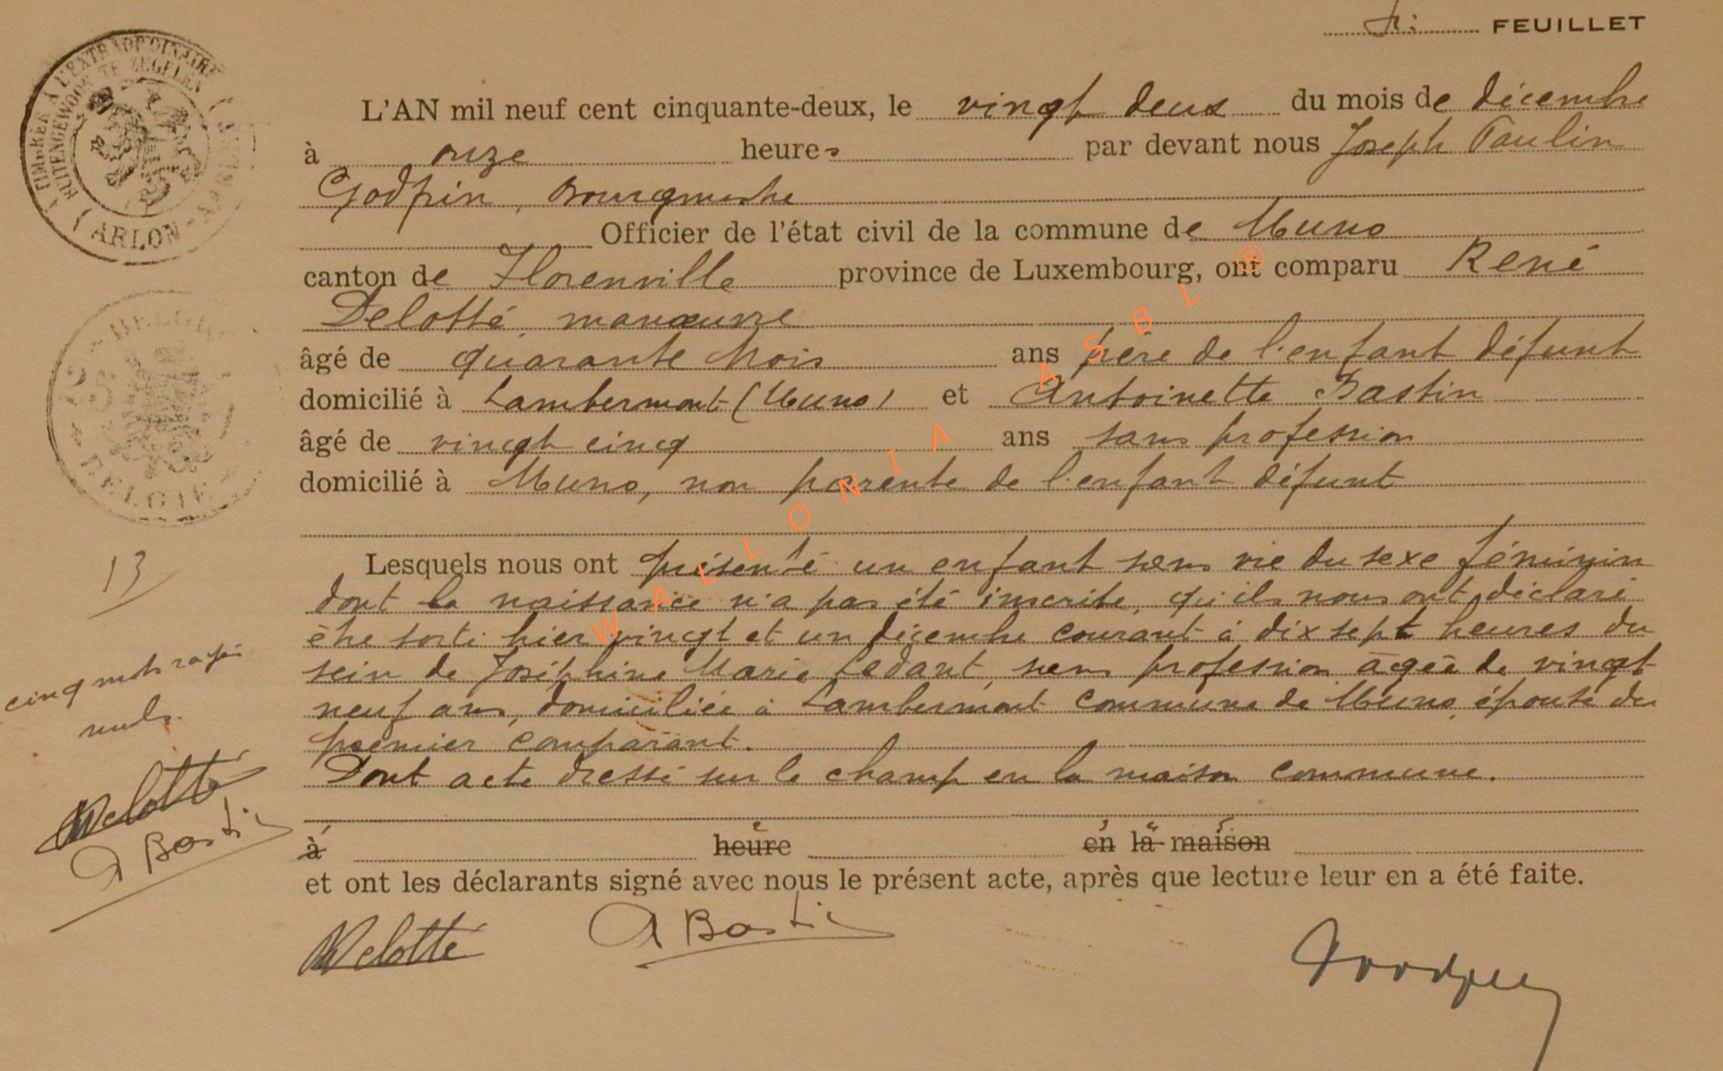 FEUILLET
TIMBRÉE A L'EXTRAORDINAIRE
BUITENGEWOON TE ZEGELEN
ARLON
L'AN mil neuf cent cinquante-deux, le vingt deux du mois de décembre
à onze heures par devant nous Joseph Paulin
Godfrin, Bourgmestre
Officier de l'état civil de la commune de Muno
canton de Florenville province de Luxembourg, ont comparu René
Delotté manœuvre
âgé de quarante trois ans père de l'enfant défunt
domicilié à Lambermont (Muno) et Antoinette Bastin
âgé de vingt cinq ans sans profession
domicilié à Muno, non parente de l'enfant défunt
BELGIE
Lesquels nous ont présenté un enfant sans vie du sexe féminin
13
dont la naissance n'a pas été inscrite, qu'ils nous ont déclaré
être sorti hier vingt et un décembre courant à dix sept heures du
sein de Joséphine Marie Ledant, sans profession âgée de vingt
neuf ans, domiciliée à Lambermont commune de Muno, épouse du
premier comparant.
Dont acte dressé sur le champ en la maison commune.
cinq mots rayés
nuls.
Delotté
A Bastin
à heure en la maison
et ont les déclarants signé avec nous le présent acte, après que lecture leur en a été faite.
Delotté A Bastin
WALLONIA ASBL ®